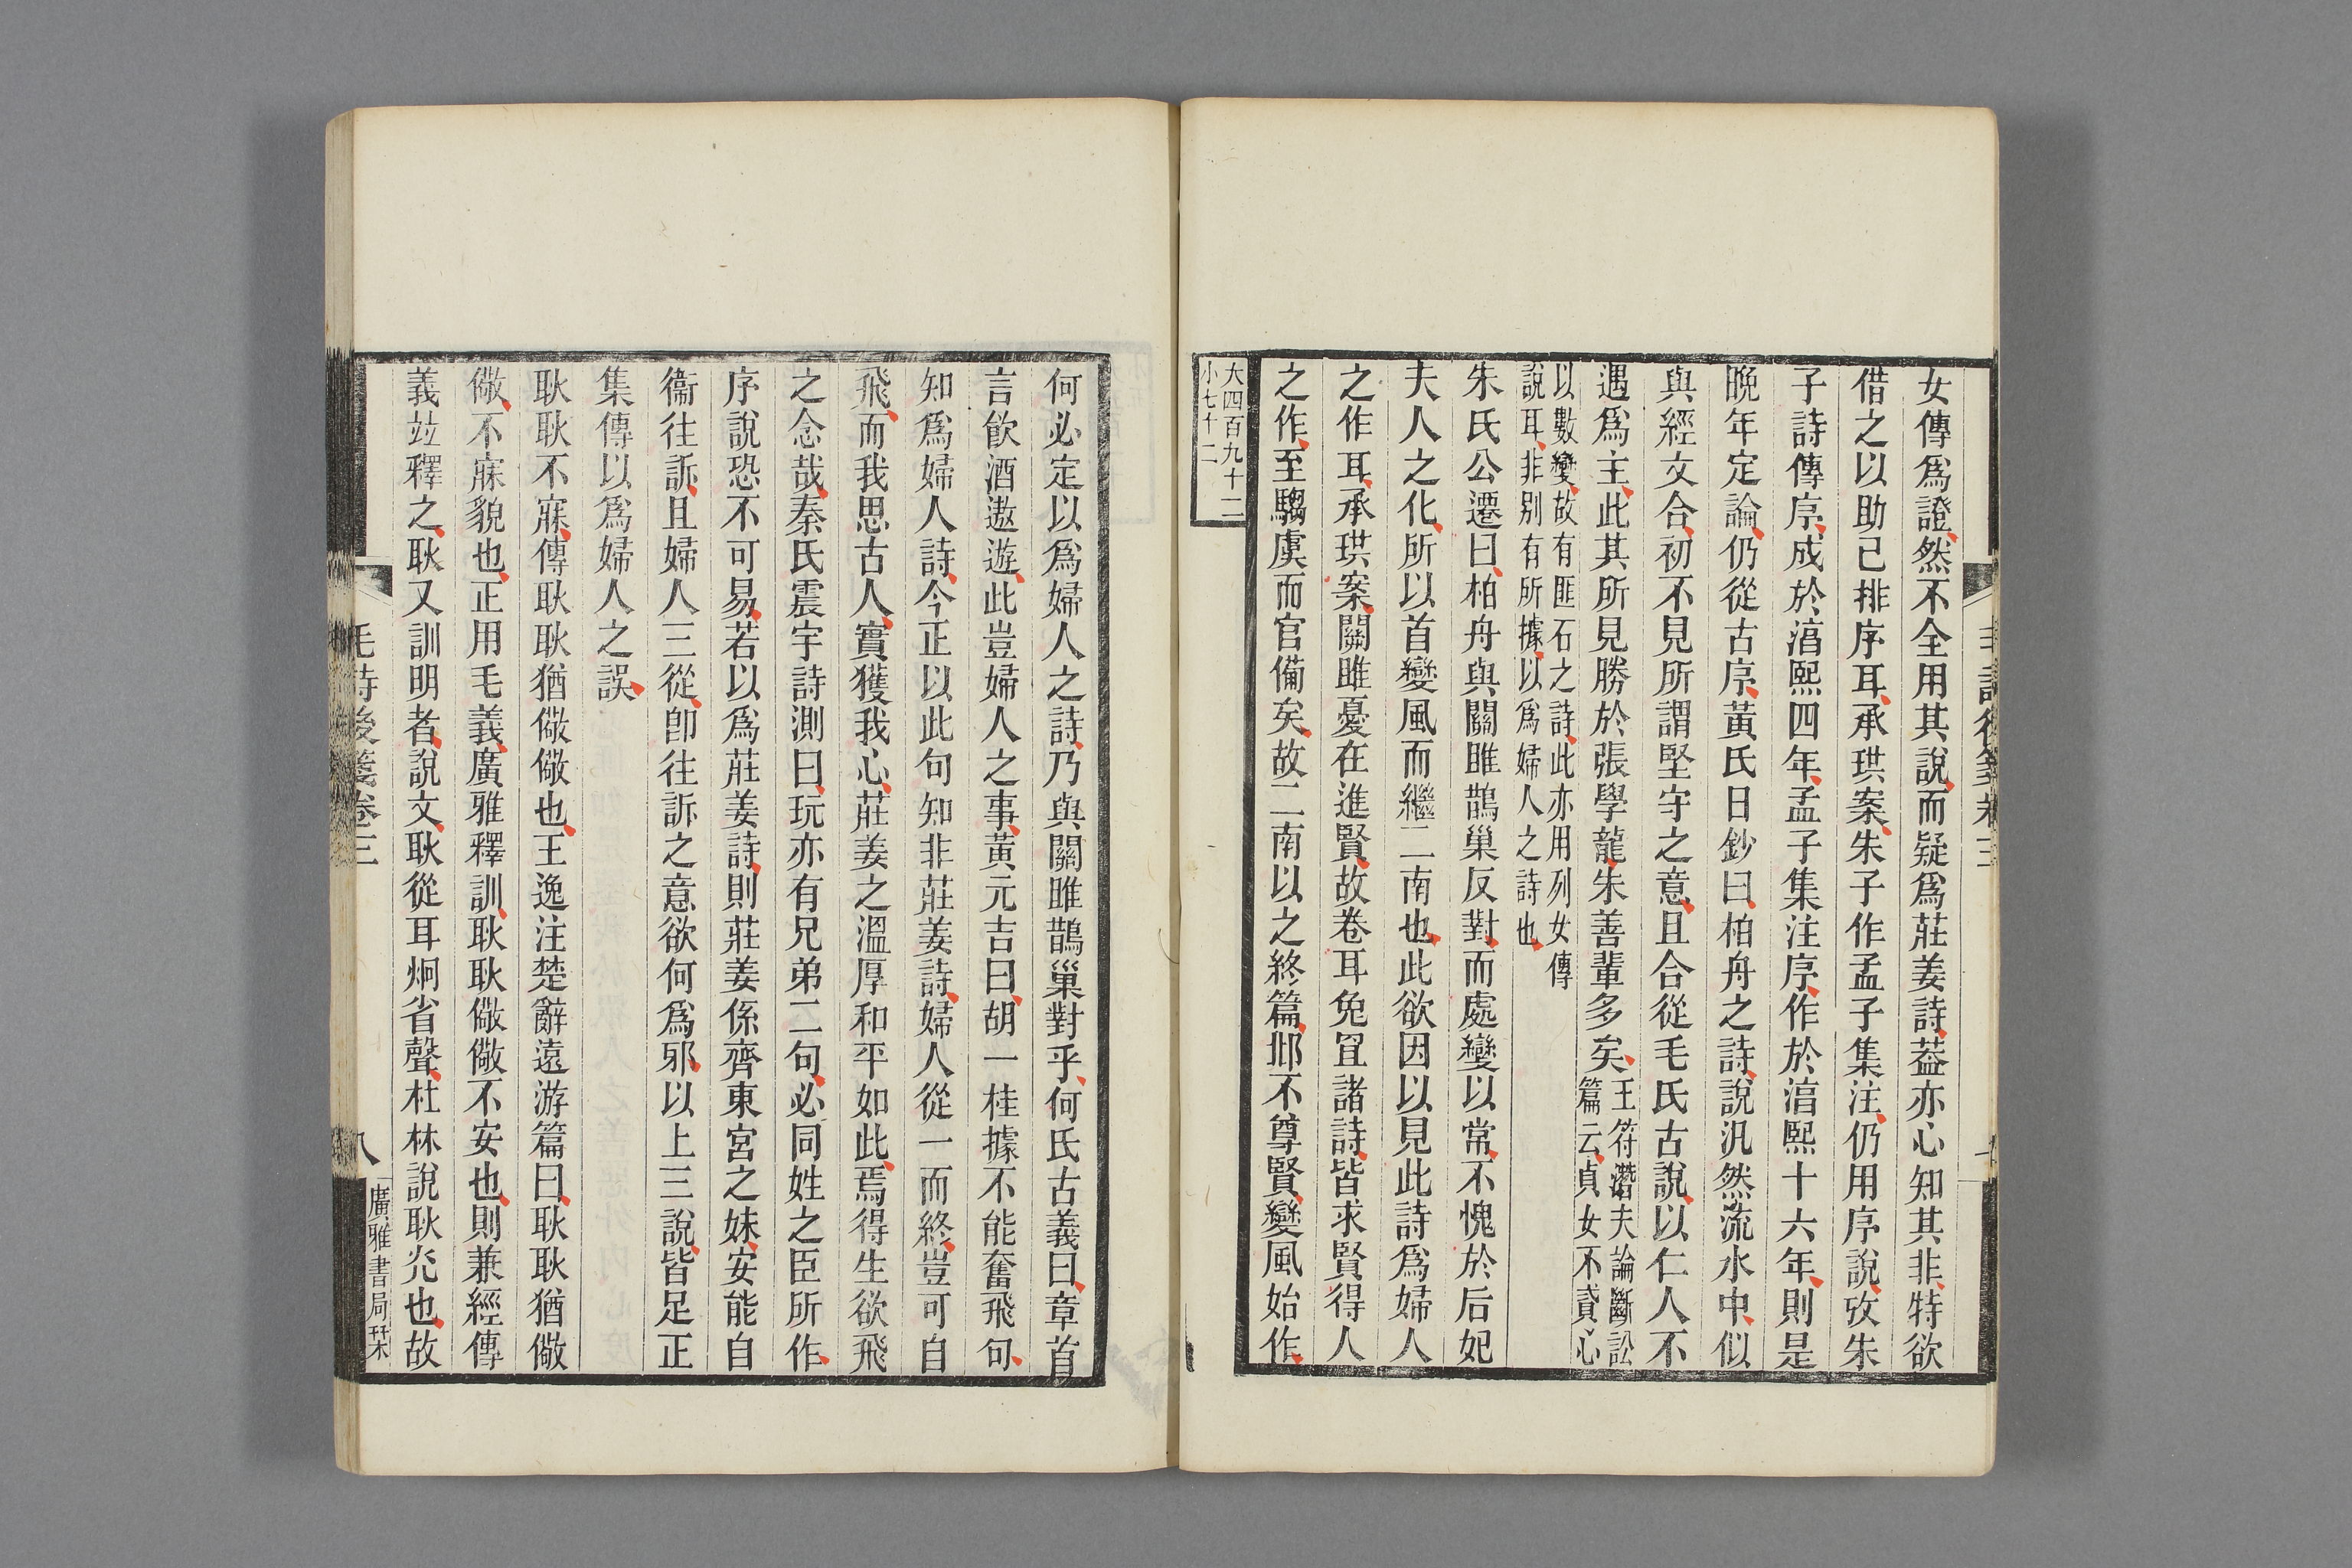 女傳爲證然不全用其說而疑爲莊姜詩葢亦心知其非特欲
借之以助己排序耳承珙案朱子作孟子集注仍用序說攷朱
子詩傳序成於淯熙四年孟子集注序作於淯熙十六年則是
晚年定論仍從古序黃氏日鈔曰柏舟之詩說汎然流水中似
與經文合初不見所謂堅宇之意且合從毛氏古說以仁人不
遇爲主此其所見勝於張學龍朱善輩多矣王符潛夫論斷訟
篇云貞女不貳心
以數變故有匪石之詩此亦用列女傳
說耳非别有所據以爲婦人之詩也
朱氏公遷曰柏舟與關雎鵲巢反對而處變以常不愧於后妃
夫人之化所以首變風而繼二南也此欲因以見此詩爲婦人
之作耳承珙案關雎憂在進賢故卷耳兔罝諸詩皆求賢得人
之作至騶虞而官備矣故二南以之終篇邶不尊賢變風始作
大四百九十二
小七十二
何必定以爲婦人之詩乃與關雎鵲巢對乎何氏古義曰章首
言飮酒遨遊此豈婦人之事黃元吉曰胡一桂據不能奮飛句
知爲婦人詩今正以此句知非莊姜詩婦人從一而終豈可自
飛而我思古人實獲我心莊姜之溫厚和平如此焉得生欲飛
之念哉秦氏震宇詩測曰玩亦有兄弟二句必同姓之臣所作
序說恐不可易若以爲莊姜詩則莊姜係齊東宮之妹安能自
衞往訴且婦人三從卽往訴之意欲何爲邪以上三說皆足正
集傳以爲婦人之誤
耿耿不寐傳耿耿猶儆儆也王逸注楚辭遠游篇曰耿耿猶儆
儆不寐貌也正用毛義廣雅釋訓耿耿儆儆不安也則兼經傳
義竝釋之耿又訓明者說文耿從耳炯省聲杜林說耿光也故
毛詩後箋卷三
八
廣雅書局栞